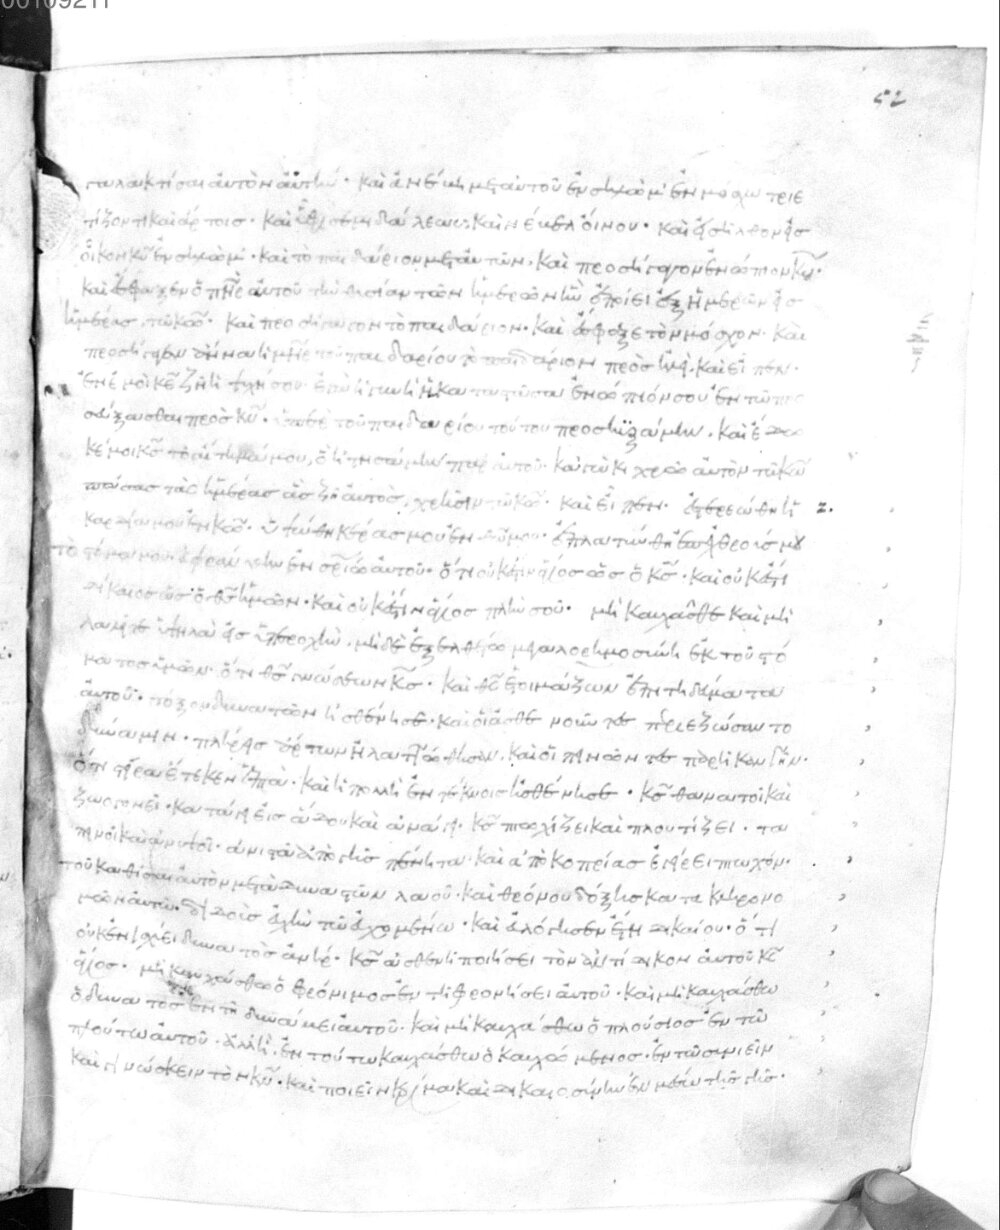 00109211
52
γαλακτίσαι αὐτὸν αὐτὴν· καὶ ἀνέβη μετ αὐτοῦ ἐν σηλὼμ ἐν μόσχω τριε
τίζοντι καὶ ἄρτοις· καὶ σεμιδάλεως καὶ νέβελ οἴνου· καὶ εἰσῆλθον εἰς
οἶκον κυ ἐν σηλὼμ· καὶ τὸ παιδάριον μετ αὐτῶν· καὶ προσήγαγον ἐνώπιον κυ·
καὶ ἔσφαξεν ὁ πηρ αὐτοῦ τὴν θυσίαν τῶν ἡμερῶν ἣν ἐποίει ἐξ ἡμερῶν εἰς
ἡμέρας τῶ κω· καὶ προσήγαγον τὸ παιδάριον· καὶ ἔσφαξε τὸν μόσχον· καὶ
προσήγαγεν ἄννα ἡ μηρ τοῦ παιδαρίου τὸ παιδάριον πρὸς ἡλί· καὶ εἶπεν·
ἐν ἐμοὶ κε ζῆ ἡ ψυχή σου ἐγὼ ἡ γυνὴ ἡ καταστᾶσα ἐνώπιόν σου ἐν τῶ προ
σεύξασθαι πρὸς κν· ὑπὲρ τοῦ παιδαρίου τούτου προσηυξάμην· καὶ ἔδω
κέ μοι κς τὸ αἴτημά μου, ὃ ἠτησάμην παρ αὐτοῦ· καὶ κιχρῶ αὐτὸν τῶ κω
πάσας τὰς ἡμέρας ἃς ζῆ αὐτὸς, χρῆσιν τῶ κω· καὶ εἶπεν· ἐστερεώθη ἡ
καρδία μου ἐν κω· ὑψώθη κέρας μου ἐν θω μου· ἐπλατύνθη ἐπ ἐχθρούς μου
τὸ στόμα μου· εὐφράνθην ἐν σρίᾳ αὐτοῦ· ὅτι οὐκ ἔστιν ἅγιος ὡς ὁ κς· καὶ οὐκ ἔστι
δίκαιος ὡς ὁ θς ἡμῶν· καὶ οὐκ ἔστιν ἅγιος πλήν σου· μὴ καυχᾶσθε καὶ μὴ
λαλεῖτε ὑψηλὰ εἰς ὑπεροχὴν, μηδὲ ἐξελθέτω μεγαλορημοσύνη ἐκ τοῦ στό
ματος ὑμῶν· ὅτι θς γνώσεων κς· καὶ θς ἑτοιμάζων ἐπιτηδεύματα
αὐτοῦ· τόξον δυνατῶν ἠσθένησε· καὶ οἱ ἀσθενοῦντες περιεζώσαντο
δύναμιν· πλήρεις ἄρτων ἠλαττώθησαν, καὶ οἱ πεινῶντες παρῆκαν γῆν·
ὅτι στεῖρα ἔτεκεν ἑπτὰ· καὶ ἡ πολλὴ ἐν τέκνοις ἠσθένησε· κς θανατοῖ καὶ
ζωογονεῖ· κατάγει εἰς ἅδου καὶ ἀνάγει· κς πτωχίζει καὶ πλουτίζει· τα
πεινοῖ καὶ ἀνυψοῖ· ἀνιστᾶ ἀπὸ γῆς πένητα· καὶ ἀπὸ κοπρίας ἐγείρει πτωχόν·
τοῦ καθίσαι αὐτὸν μετὰ δυναστῶν λαοῦ· καὶ θρόνου δόξης κατακληρονο
μῶν αὐτῶ· διδοὺς εὐχὴν τῶ εὐχομένω· καὶ εὐλόγησεν ἔτη δικαίου· ὅτι
οὐκ ἐν ἰσχύει δυνατὸς ἀνήρ· κς ἀσθενῆ ποιήσει τὸν ἀντίδικον αὐτοῦ κς
ἅγιος· μὴ καυχάσθω ὁ φρόνιμος ἐν τῆ φρονήσει αὐτοῦ· καὶ μὴ καυχάσθω
ὁ δυνατὸς ἐν τῆ δυνάμει αὐτοῦ· καὶ μὴ καυχάσθω ὁ πλούσιος ἐν τῶ
πλούτω αὐτοῦ· ἀλλ ἢ ἐν τούτω καυχάσθω ὁ καυχώμενος· ἐν τῶ συνιεῖν
καὶ γινώσκειν τὸν κν· καὶ ποιεῖν κρίμα καὶ δικαιοσύνην ἐν μέσω τῆς γῆς·